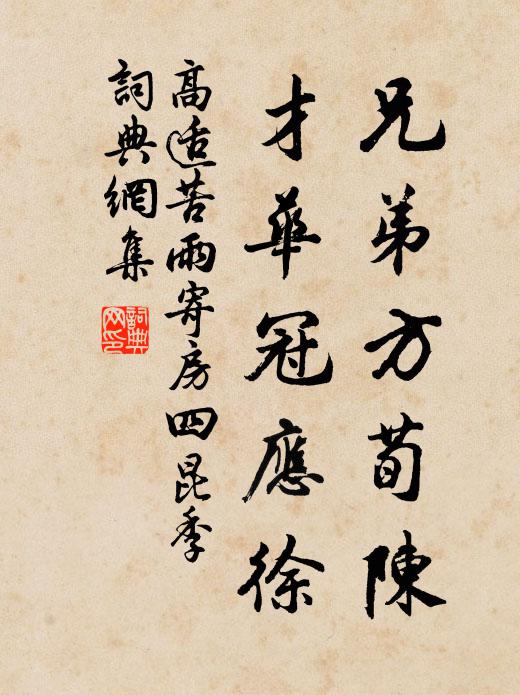 兄弟方荀陳
才華冠應徐
高适苦雨寄房四昆季
詞典網集
詞典网印